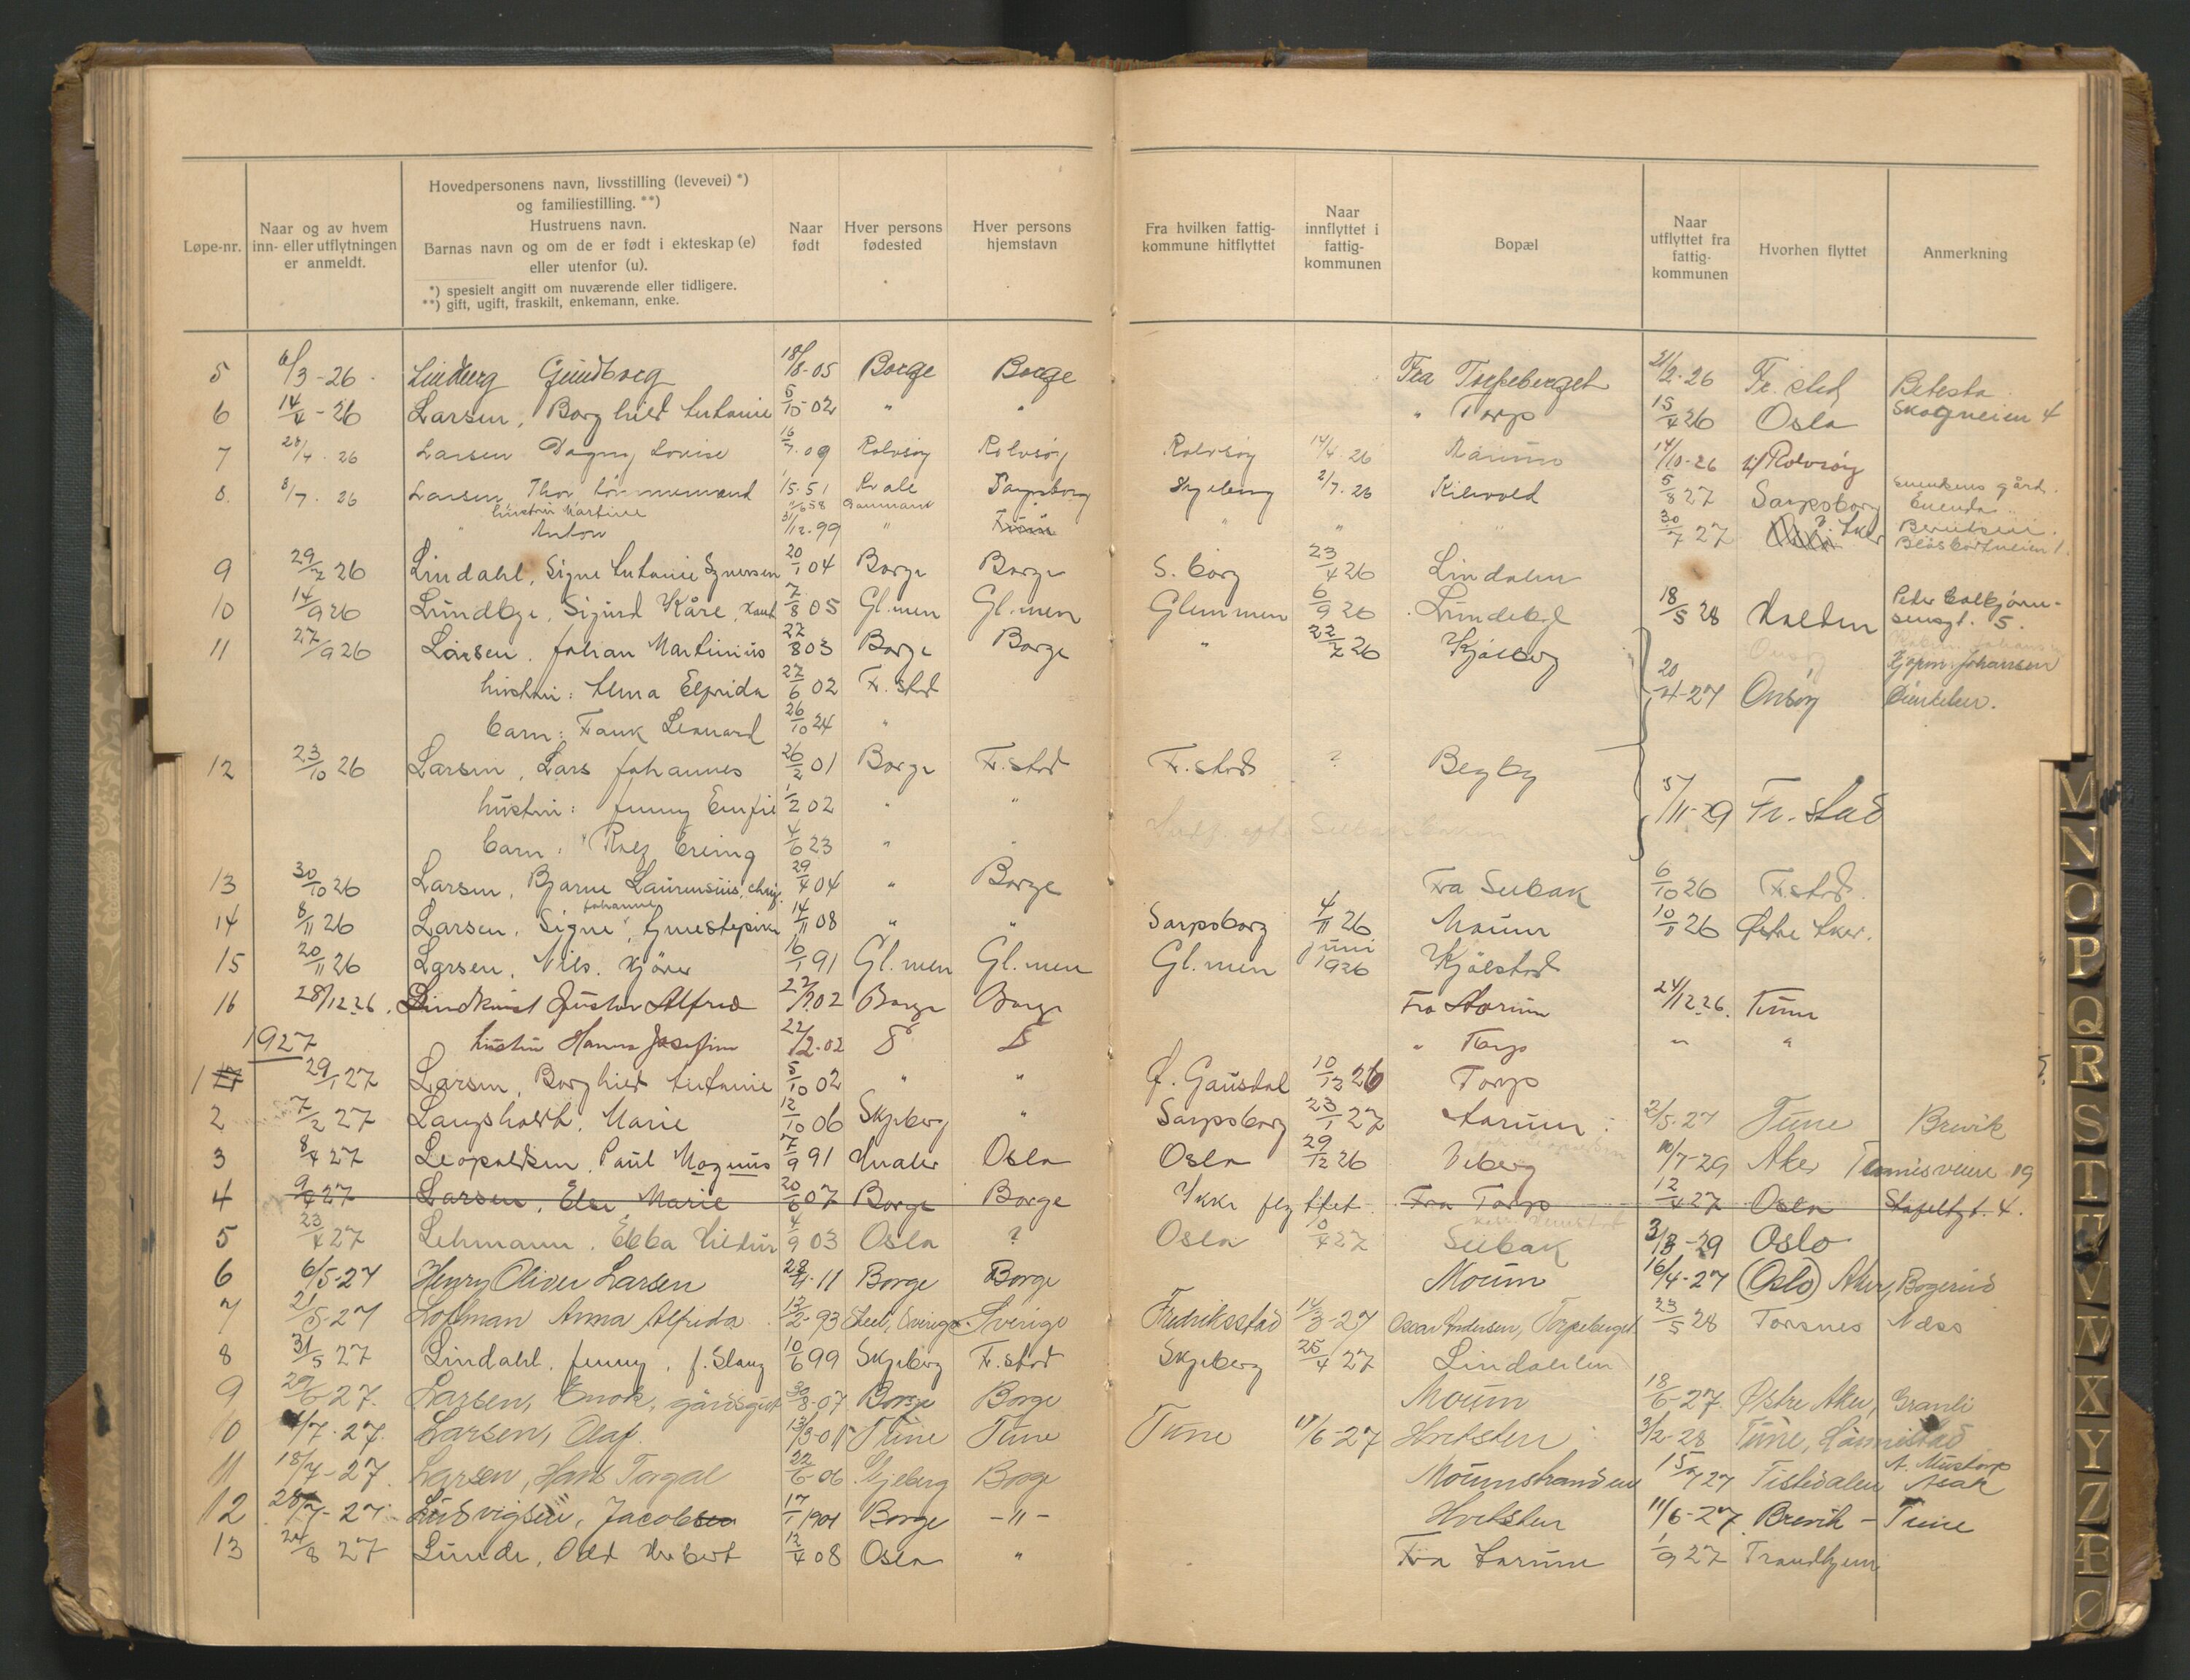 Løpe-nr. Naar og av hvem inn- eller utflytningen er anmeldt. Hovedpersonens navn, livsstilling (levevei) *) og familiestilling. **) Hustruens navn. Barnas navn og om de er født i ekteskap (e) eller utenfor (u). *) spesielt angitt om nuværende eller tidligere. **) gift, ugift, fraskilt, enkemann, enke. Naar født Hver persons fødested Hver persons hjemstavn Fra hvilken fattig-kommune hitflyttet Naar innflyttet i fattig-kommunen Bopæl Naar utflyttet fra fattig-kommunen Hvorhen flyttet Anmerkning
5 6/3-26 Lindberg Gundborg 18/8-05 Borge Borge Fra Torpeberget 21/2-26 Fr. stad Betesta
6 14/4-26 Larsen, Borghild Antonie 5/10-02 " " " Torp 15/4 26 Oslo Skogveien 4
7 28/4 26 Larsen Dagny Lovise 16/7-09 Rolvsøy Rolvsøy Rolvsøy 14/4 26 14/10-26 Rolvsøy
8. 8/7 26 Larsen, Thor, tømmermand 15-51 Sarpsborg Skjeberg 2/7 26 5/8 27 Sarpsborg gård.
hustru Martine
" Anton 31/12.99 " " " " 30/7 27 Aker
9 29/7 26 Lindahl, Signe Antonie Synøven 20/1 04 Borge Borge S.borg 23/4 26 Lindalen
10 14/9 26 Lundbye, Sigurd Kåre, 7/8 05 Gl.men Gl.men Glemmen 6/9 26 18/5 28 Halden Peter
11 27/9 26 Larsen, Johan Martinius 27/8 03 Borge Borge " 22/7 26 Kjølberg
hustru: Alma Elfrida 27/6 02 F.stad 20/4-27 Onsøy Johansen
barn: Leonard 26/10 24 "
12 23/10 26 Larsen, Lars Johannes 26/2 01 Borge F.stad F.stad ? Begby
hustru: Jenny Emilie 1/2 02 " " 5/11-29 Fr. stad
barn: Rolf Erling 4/6 23 " "
13 30/10 26 Larsen, Bjarne Laurensius, 29/4 04 " Borge Fra Selbak 6/10 26 F.stad
14 8/11 26 Larsen, Signe Johanne, tjenestepike 14/11 08 " " Sarpsborg 4/11 26 Moum 10/11 26 Østre Aker.
15 20/11 26 Larsen, Nils. kjører 16/1 91 Gl.men Gl.men Gl.men juni 1926 Kjølstad
16 28/12 26. Lindkvist Gustav Alfred 22/7 02 Borge Borge Fra Aarum 24/12.26. Tune
1927 hustru Hanna Josefine 22/2-02 " Torp " "
1 29/1 27 Larsen, Borghild Antonie 5/10 02 " " Ø. Gausdal 10/12 26 Torp
2 7/2 27 Langsholt, Marie 12/10 06 Skjeberg " Sarpsborg 23/1 27 Aarum 2/5-27 Tune Brevik
3 8/4 27 Leopoldsen, Paul Magnus 7/9 91 Hvaler Oslo Oslo 29/12 26 Viberg 10/7-29 Aker Tennisveien 19
4 9/4 27 Larsen, Else Marie 20/6 07 Borge Borge Ikke flyttet. Fra Torp 12/4 27 Oslo Stafeltgt. 4.
5 23/4 27 Lehmann, Ebba Hildur 4/9 03 Oslo ? Oslo 10/4 27 Selbak 3/3-29 Oslo
6 6/5-27 Henry Oliver Larsen 28/1-11 Borge Borge Moum 16/4-27 (Oslo) Aker, Bogerud
7 21/5-27 Hofman Anna Alfrida 12/2-93 Sverige Sverige Fredriksstad 14/3-27 Oscar Andersen, Torpeberget 23/5 28 Torsnes Næss
8 31/5 27 Lindahl, Jenny, f. Slang 10/6 99 Skjeberg F.stad Skjeberg 25/4 27 Lindahlen
9 29/6-27. Larsen, Enok, gårdsgut 30/8-07 Borge Borge Moum 18/6-27 Østre Aker, Granli
10 1/7-27. Larsen, Olaf. Tune Tune Tune 11/6-27 Hvitsten 3/2-28 Tune,
11 18/7-27. Larsen, Hans Torgal 22/6-06 Skjeberg Borge Moumstranden 15/7 27 Tistedalen Asak
12 28/7-27. Ludvigsen, Jacobsen 17/1 1901 Borge -"- Hvitsten 11/6-27 Brevik - Tune
13 24/8 27 Lunde, Odd Herbert 12/4 08 Oslo " Fra Aarum 1/9 27 Trondhjem
M
N
O
P
Q
R
S
T
U
V
W
X
Y
Z
Æ
Ø